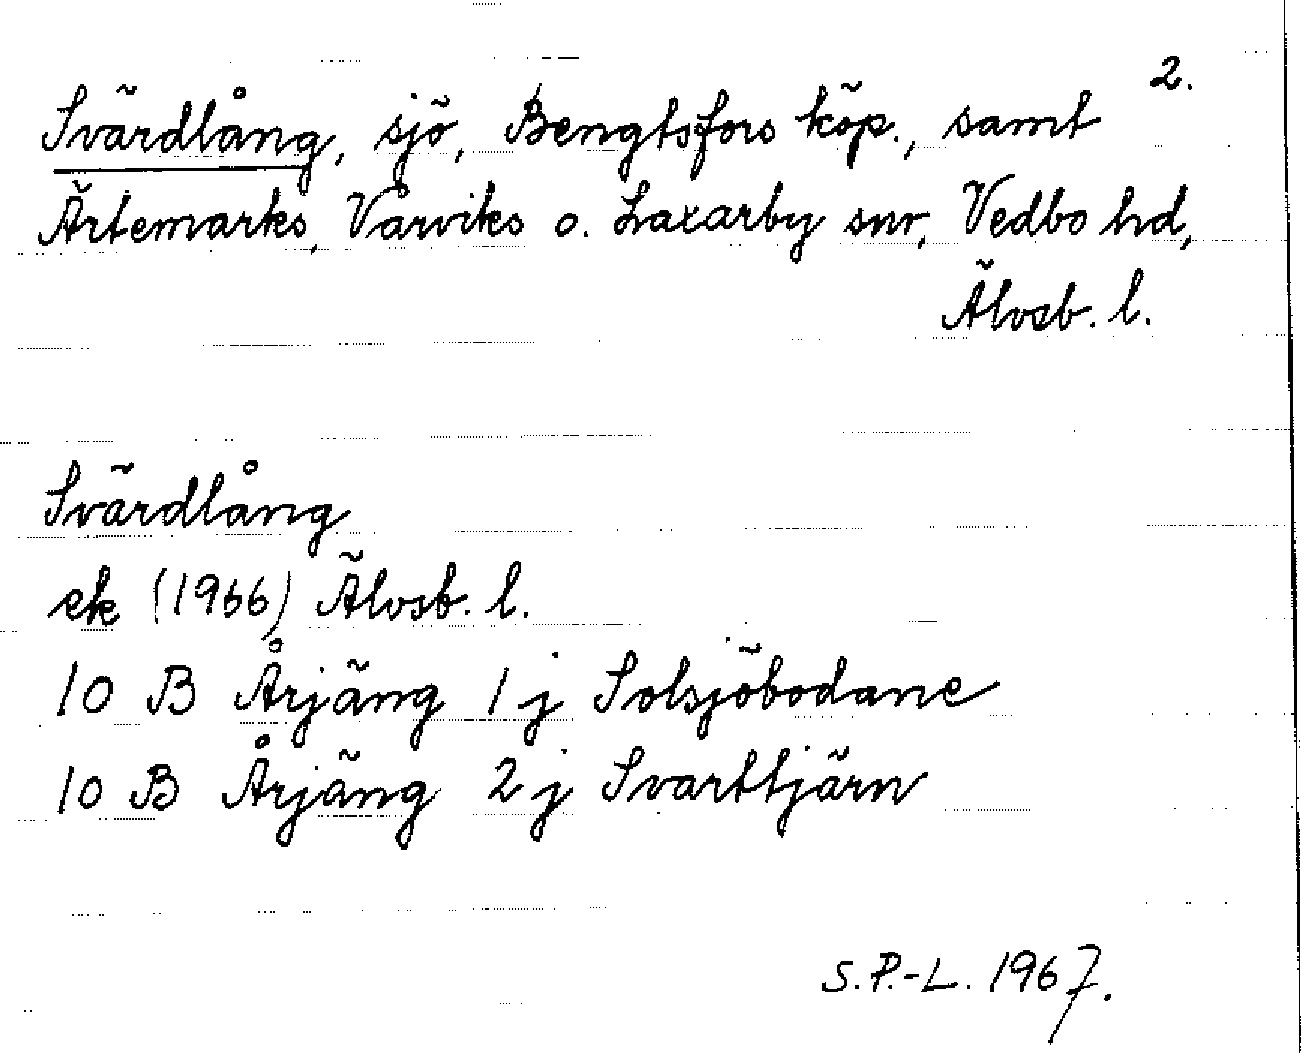 2.
Svärdlång, sjö, Bengtsfors köp., samt
Ärtemarks, Vårviks o. Laxarby snr, Vedbo hd,
Älvsb. l.
Svärdlång
ek (1966) Älvsb. l.
10 B Årjäng 1 j Solsjöbodane
10 B Årjäng 2 j Svarttjärn
S.P.-L. 1967.